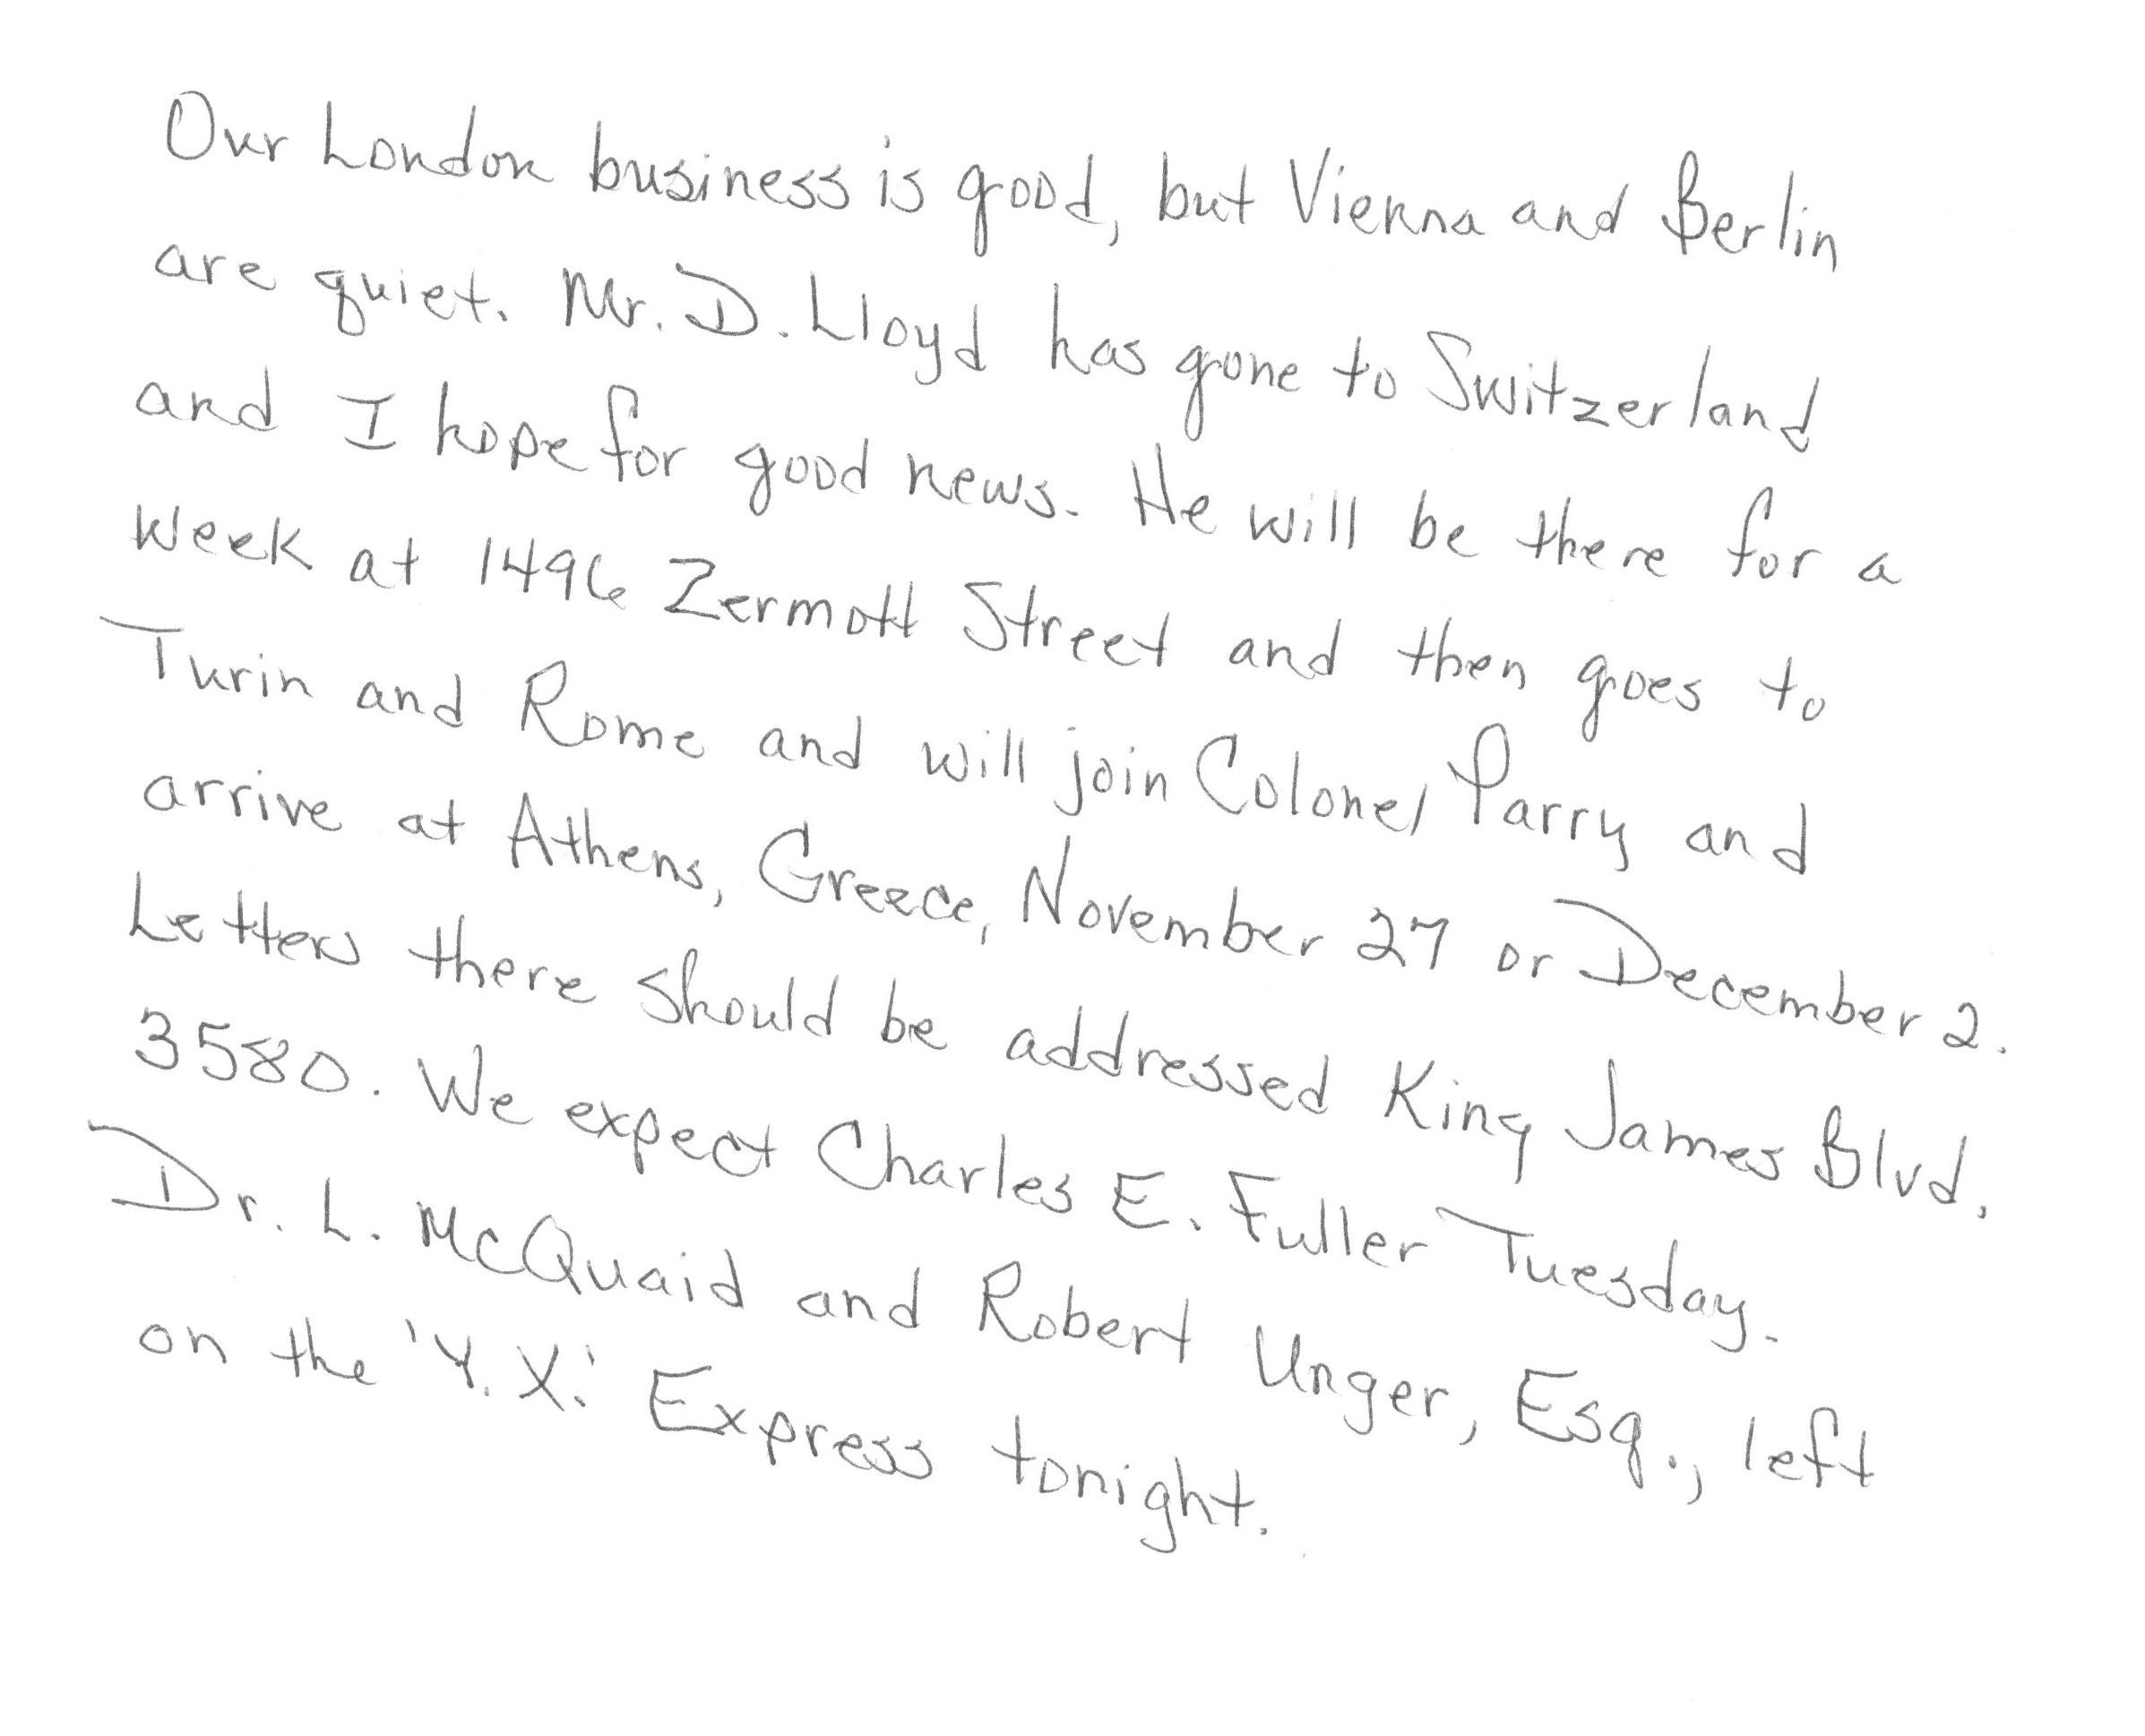 Our London business is good, but Vienna and Berlin
are quiet. Mr. D. Lloyd has gone to Switzerland
and I hope for good news. He will be there for a
week at 1496 Zermott Street and then goes to
Turin and Rome and will join Colonel Parry and
arrive at Athens, Greece, November 27 or December 2.
Letters there should be addressed King James Blvd.
3580. We expect Charles E. Fuller Tuesday.
Dr. L. McQuaid and Robert Unger, Esq., left
on the 'Y.X.' Express tonight.